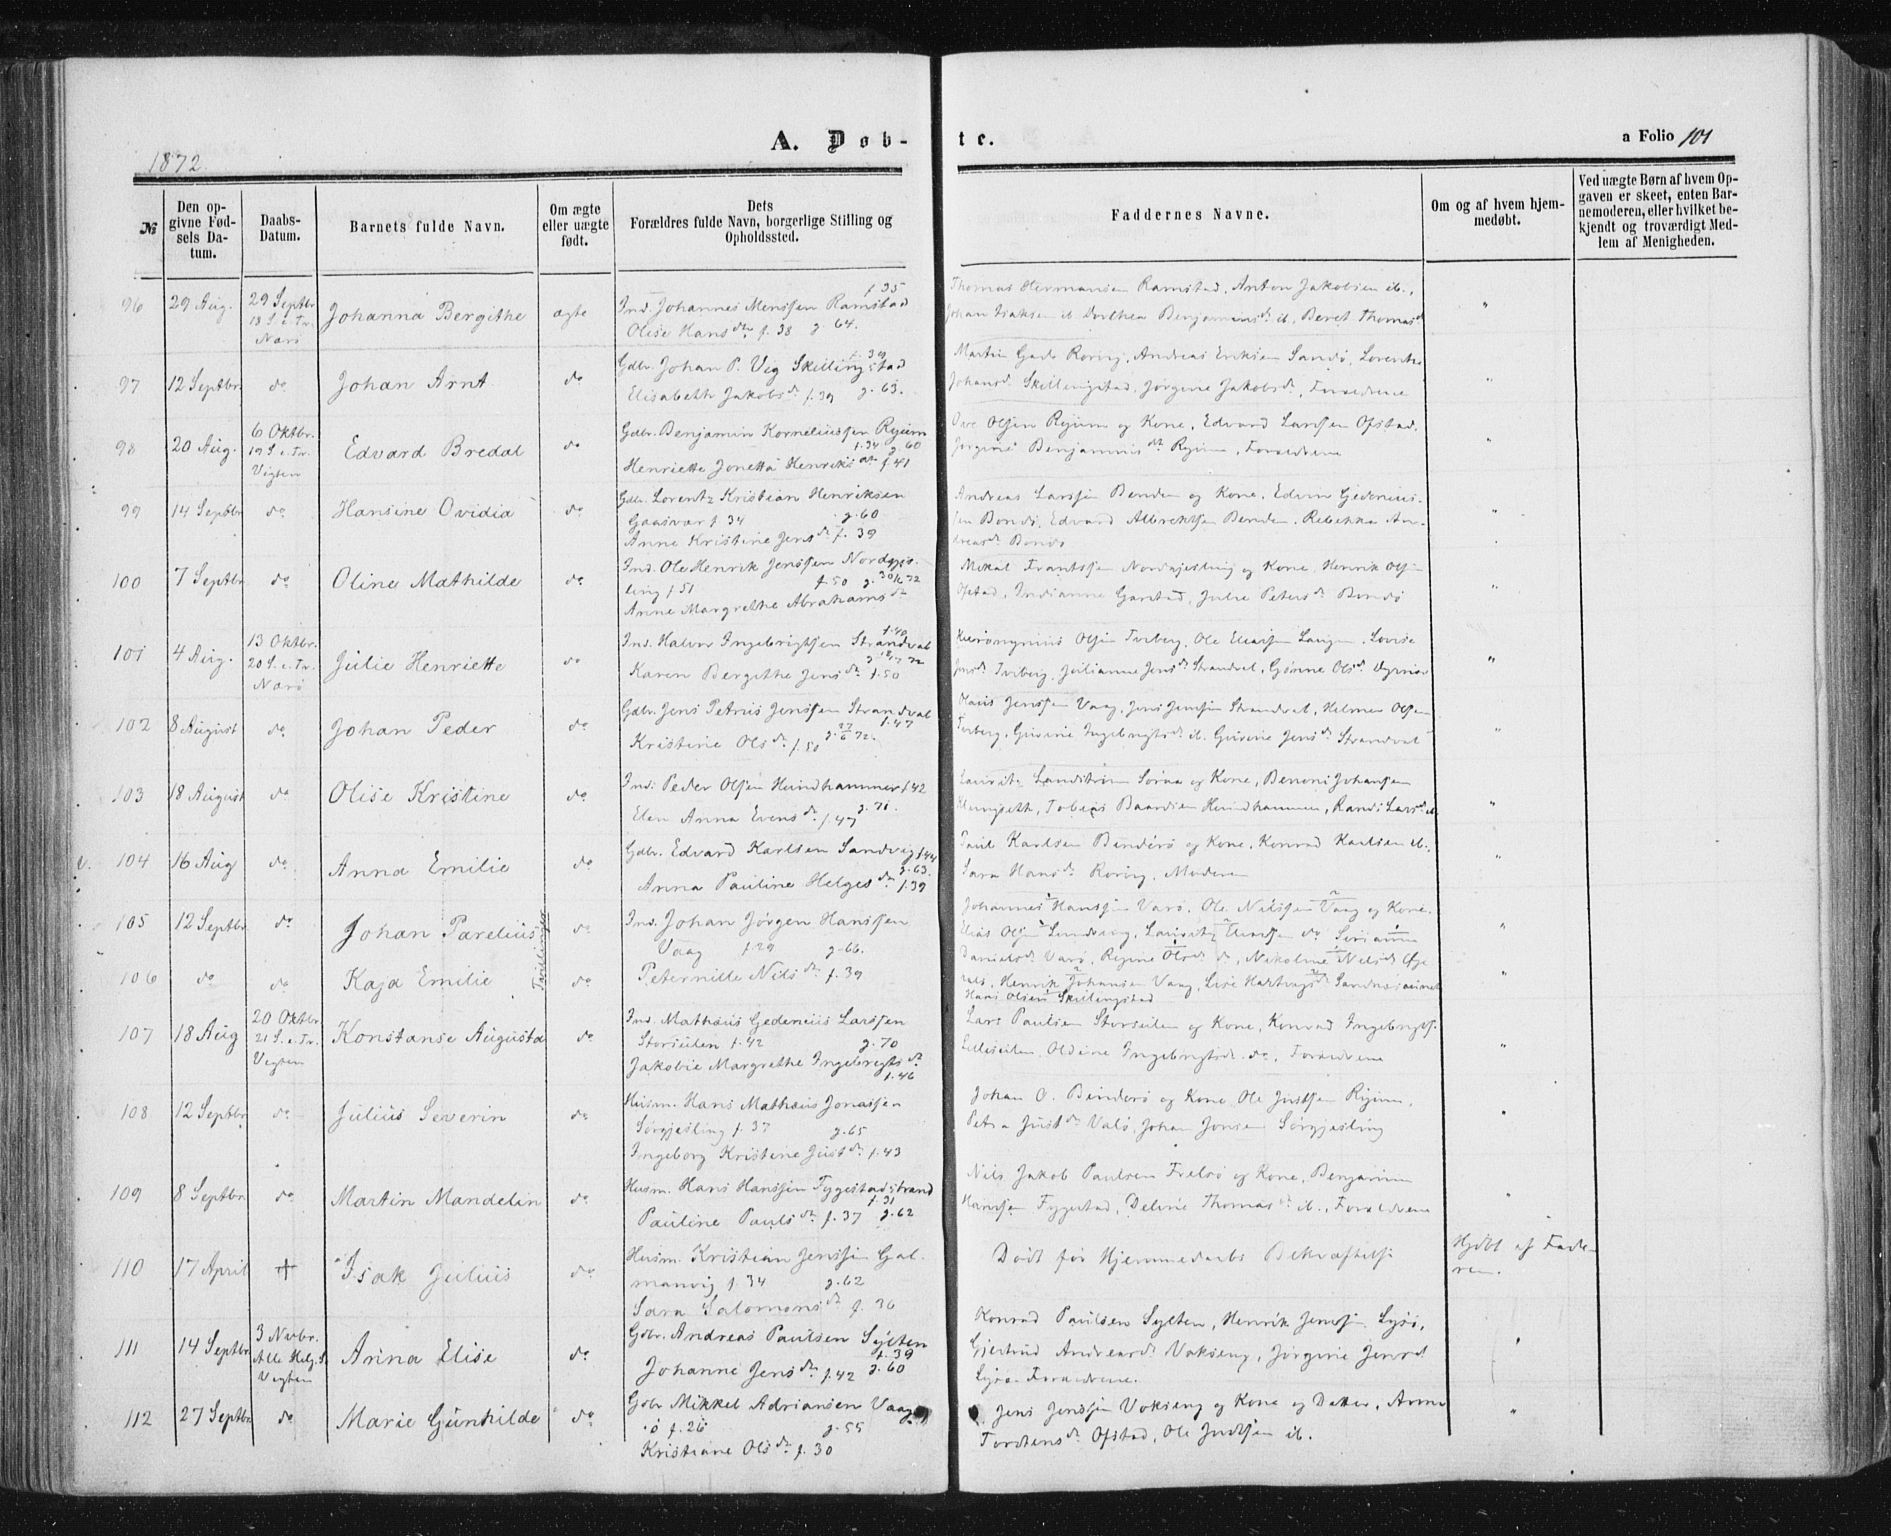 1872
A. Døb-
te.
a Folio 101
№
Den opgivne Fødsels Datum.
Daabs-Datum.
Barnets fulde Navn.
Om ægte eller uægte født.
Dets Forældres fulde Navn, borgerlige Stilling og Opholdssted.
Faddernes Navne.
Om og af hvem hjemmedøbt.
Ved uægte Børn af hvem Opgaven er skeet, enten Barnemoderen, eller hvilket bekjendt og troværdigt Medlem af Menigheden.
96 29 Aug. 29 Septbr. 18 S. e. Tr. Nærø Johanna Bergithe ægte
Ind. Johannes Menssen Ramstad f.35
Olise Hansdtr f. 38 g. 64.
Thomas Hermansen Ramstad, Anton Jakobsen ib.,
Johan Isaksen ib. Dorthea Benjaminsdtr ib, Beret Thomasdtr "
97 12 Septbr. do Johan Arnt do
Gdbr. Johan P. Veg Skillingstad f. 39
Elisabeth Jakobsdtr f. 39 g. 63.
Martin Gade Roring, Andreas Eriksen Sandø, Lorentse
Johansdtr Skillingstad, Jørgine Jakobsdtr, Forældrene "
98 20 Aug. 6 Oktbr. 19 S. e. Tr. Vigten Edvard Bredal do
Gdbr. Benjamin Korneliussen Ryum f.34 g.60
Henriette Jonetta Henriksdtr f.41
Ove Olsen Ryum og Kone, Edvard Larssen Ofstad,
Jørgine Benjaminsdtr Ryum, Forældrene "
99 14 Septbr do Hansine Ovidia do
Gdbr. Lorentz Kristian Henriksen
Gaasvær f. 34 g. 60
Anne Kristine Jensdtr f. 39
Andreas Larssen Benden og Kone, Edvin Gedenius-
sen Bondø, Edvard Albrektsen Benden, Rebekka An-
dreasdtr Bondø "
100 7 Septbr do Oline Mathilde do
Ind. Ole Henrik Jenssen Nordgjæs-
ling f 51 f. 50 g. 30/6 72
Anne Margrethe Abrahamsdtr
Mikal Frantssen Nordgjæsling og Kone, Henrik Olsen
Ofstad, Indianne Garstad, Julie Petersdtr Bondø
101 4 Aug. 13 Oktbr. 20 S. e. Tr. Nærø Julie Henriette do
Ind. Halvor Ingebrigtsen Strandval f.40
Karen Bergithe Jensdtr f.50
Hieronymus Olsen Torberg, Ole Eliassen Langen, Lovise
Jensdtr Torberg, Julianne Jensdtr Strandval, Gjønne Olsdtr "
102 8 August do Johan Peder do
Gdbr. Jens Petrus Jenssen Strandval f.47
Kristine Olsdtr f. 50 g. 27/6 72.
Hans Jenssen Vaag, Jens Jenssen Strandval, Helmer Olsen
Torberg, Gurine Ingebrigtsdtr ib. Gurine Jensdtr Strandval "
103 18 August do Olise Kristine do
Ind: Peder Olsen Hundhammer f.42
Elen Anna Evensdtr f.47 g.71.
Laurits Landstrøm Søraa og Kone, Benoni Johansen
Tobias Baardsen Hundhammer, Randi Larsdtr ib "
104 16 Aug do Anna Emilie do
Gdbr. Edvard Karlsen Sandvig f.44
Anna Pauline Helgesdtr f.39 g.63.
Paul Karlsen Binderø og Kone, Konrad Karlsen ib.,
Sara Hansdtr Roring, Moderen "
105 12 Septbr do Johan Parelius do
Tvillinger
Ind. Johan Jørgen Hanssen
Vaag f.29 g.66.
106 do do Kaja Emilie do
Peternille Nilsdtr f.39
Johannes Hanssen Varø, Ole Nilssen Vaag og Kone,
Elias Olsen Lundring, Lauritz Eliassen do
Danielsdtr Varø, Regine Olsdtr do, Nikoline Nilsdtr
Henrik Johansen Vaag, Lise Hartvigsdtr
Hans Olsen Skillingstad "
107 18 Aug 20 Oktbr 21 S. e. Tr. Vigten Konstanse Augusta do
Ind. Mathæus Gedenius Larssen
Storseilen f. 42 g. 70
Jakobie Margrethe Ingebrigtsdtr f.46
Lars Paulsen Storseilen og Kone, Konrad Ingebrigts.
Lilleseilen, Oldine Ingebrigtsdtr do, Forældrene "
108 12 Septbr do Julius Severin do
Husm. Hans Mathæus Jonassen
Sørgjesling f. 37 g. 65
Ingeborg Kristine Justdtr f.43
Johan O. Binderø og Kone, Ole Justsen Ryum,
Petra Justdtr Valø, Johan Jonsen Sørgjesling "
109 8 Septbr do Martin Mandelin do
Husm. Hans Hanssen Fyggestadstrand f.31
Pauline Paulsdtr f. 37 g. 62
Nils Jakob Paulsen Frelsø og Kone, Benjamin
Hanssen Fyggestad, Deline Thomasdtr ib., Forældrene "
110 17 April + Isak Julius do
Husm. Kristian Jenssen Gal-
manvig f. 34 g. 62
Sara Salomonsdtr f. 36
Dødt før Hjemmedaabs Bekræftelse
Hjdbt af Fade-
ren.
111 14 Septbr 3 Novbr. Alle Helg. S. Vigten Anna Elise do
Gdbr. Andreas Paulsen Sylten f.39
Johanne Jensdtr f.42 g.60
Konrad Paulsen Sylten, Henrik Jenssen Lysø,
Gjertrud Andreasdtr Vokseng, Jørgine Jensdtr
Lysø. Forældrene. "
112 27 Septbr do Marie Gunhilde do
Gdbr Mikkel Adriansen Vaag-
ø f.26 g.55
Kristiane Olsdtr f. 30
Jens Jenssen Vokseng og Kone og Datter, Anne
Tordensdtr Ofstad, Ole Justsen ib. "